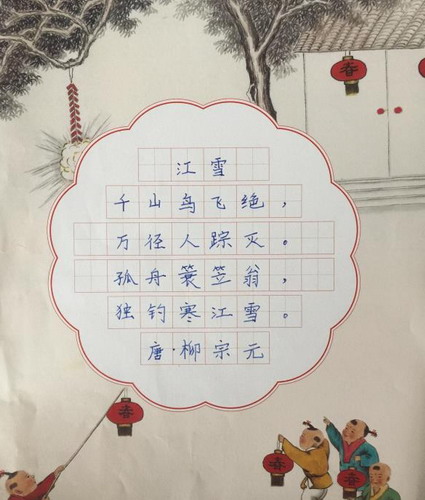 江雪
千山鸟飞绝，
万径人踪灭。
孤舟蓑笠翁，
独钓寒江雪。
唐·柳宗元
春
春
春